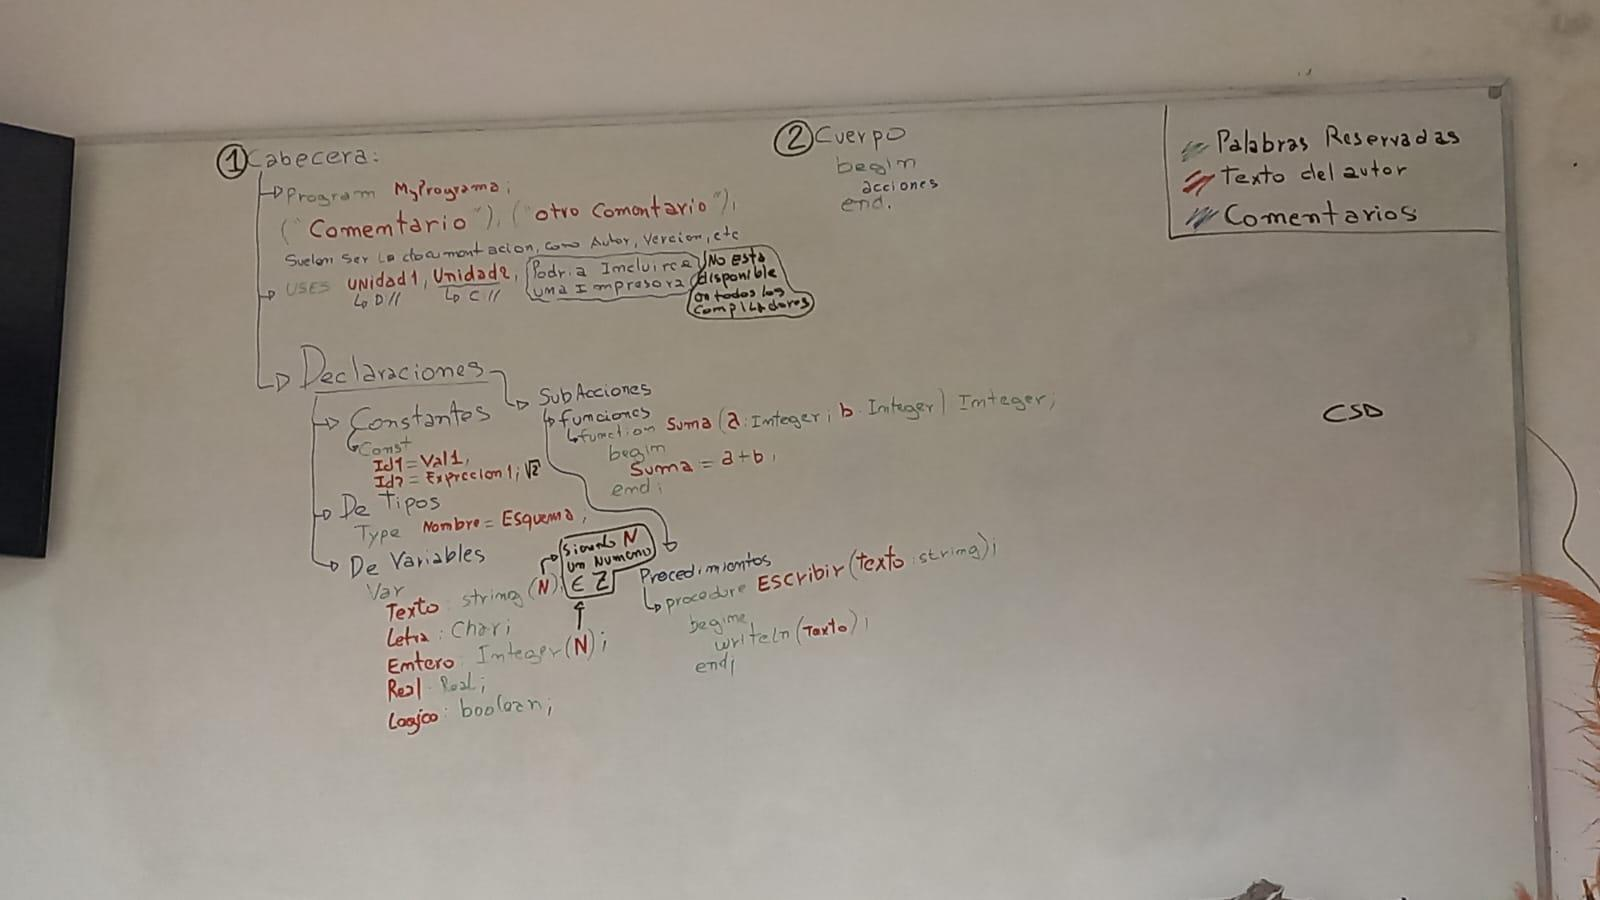 ① Cabecera:
Program MyPrograma;
("Comentario"), ("otro Comentario"),
Suelen Ser La documentacion, como Autor, Vercion, etc
USES UNidad1, Unidad2, Podria Incluirce
una Impresora
↳ D// ↳ C//
No Está
disponible
en todos los
CompiLadores
Declaraciones
Constantes
Const
Id1 = Val1,
Id2 = Exprecion1; √2
De Tipos
Type Nombre = Esquema;
De Variables
Var
Texto: string (N);
Letra: Char;
Entero: Integer(N);
Real: Real;
Logico: boolean;
Siendo N
un Numero
∈ Z
SubAcciones
funciones
function Suma (a: Integer; b: Integer) Integer;
begin
Suma = a+b;
end;
Procedimientos
procedure Escribir (texto: string);
begin
writeln(Texto);
end;
② Cuerpo
begin
acciones
end.
Palabras Reservadas
Texto del autor
Comentarios
CSD